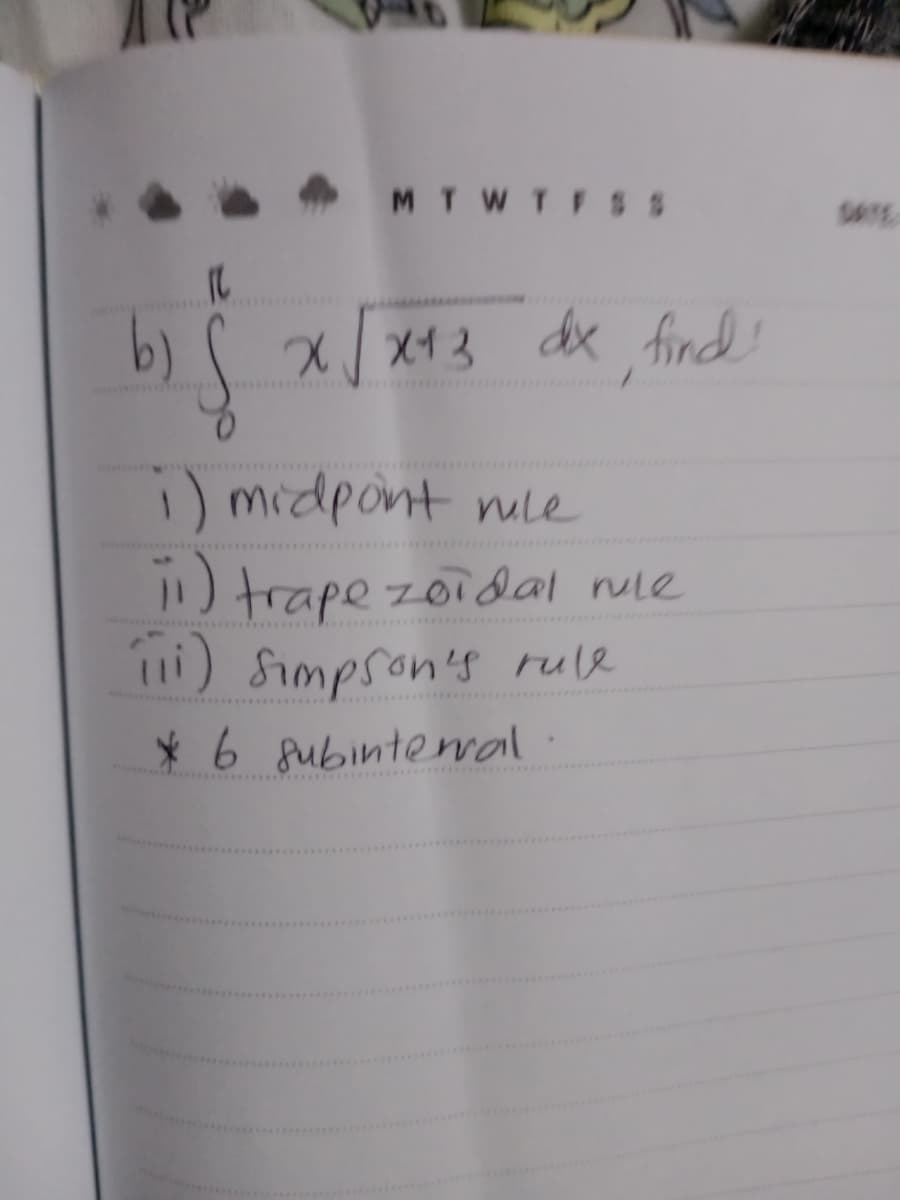 M T W T F S S
DATE:
π
b) ∫ x√x+3 dx, find:
0
i) midpoint rule
ii) trapezoidal rule
iii) Simpson's rule
* 6 subinterval.